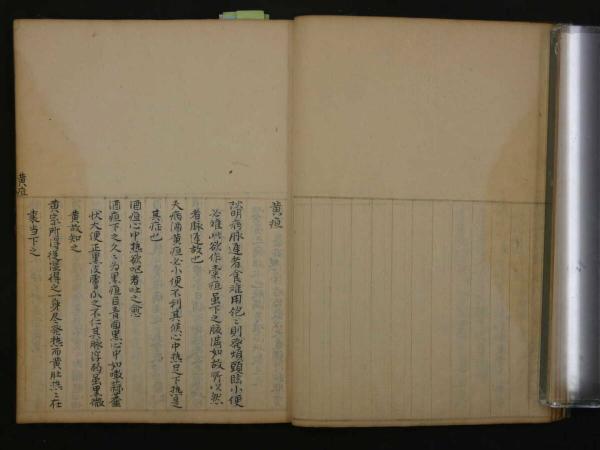 黄疸
陽明病脉遅者食難用飽〻則發煩頭眩小便
必難此欲作穀疸虽下之腹満如故所以然
者脉遅故也
夫病酒黄疸必小便不利其候心中热足下热是
其症也
酒疸心中热欲呕者吐之愈
酒疸下之久〻為黒疸目青面黒心中如噉蒜齏
状大便正黒皮膚爪之不仁其脉浮弱虽黒微
黄故知之
黄家所得從湿得之一身尽発热而黄肚热〻在
裏当下之
黄疸